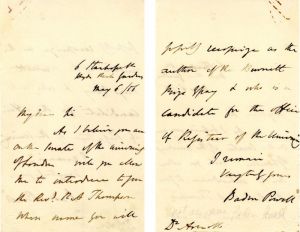 6 Stanhope St
Hyde Park Gardens
May 6/56
My dear Sir
As I believe you are
on the Senate of the University
of London will you allow
me to introduce to you
the Revd. R. A. Thompson
whose name you will
recognise as the
author of the Burnett
Prize Essay & who is a
candidate for the office
of Register of the University
I remain
Very truly yours
Baden Powell
Dr Arnott